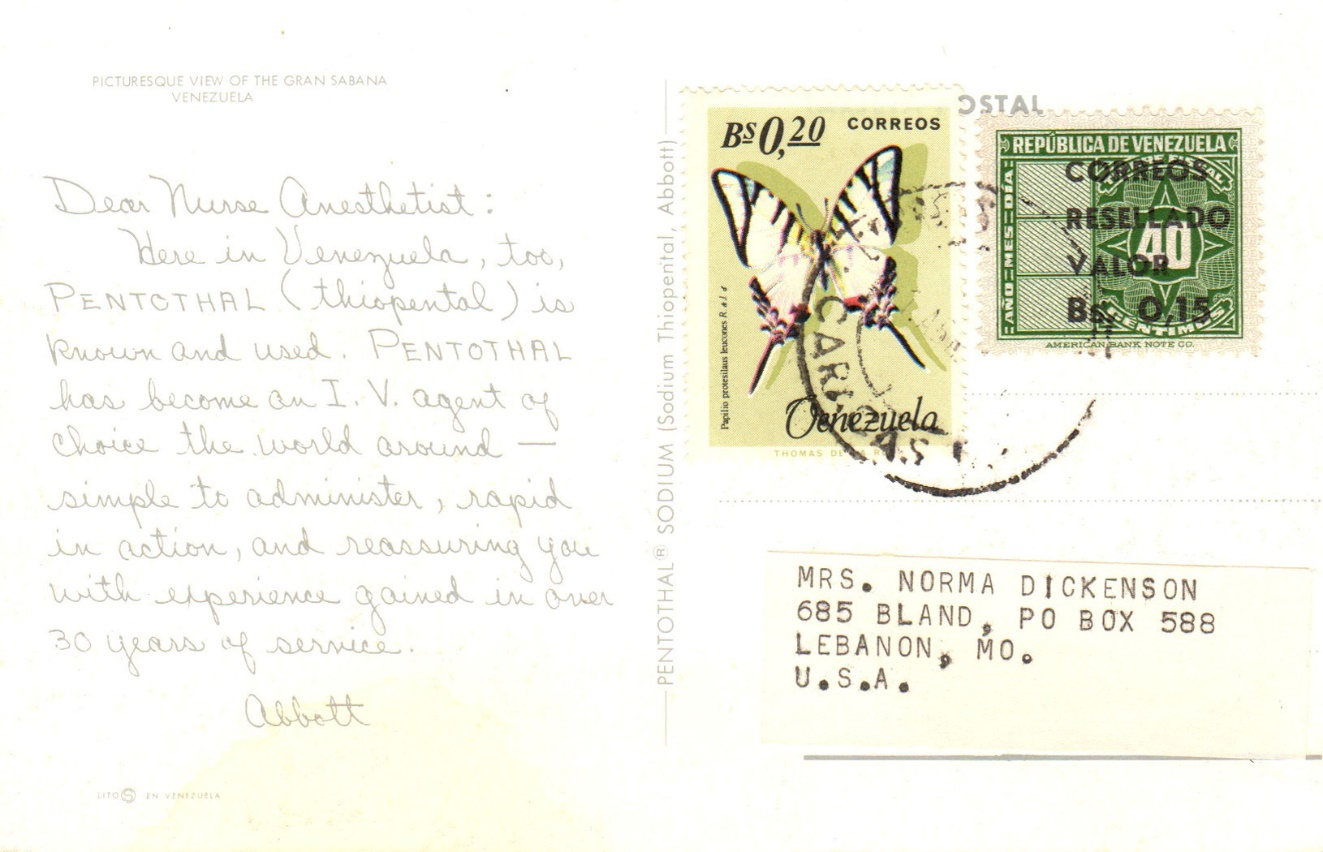 PICTURESQUE VIEW OF THE GRAN SABANA
VENEZUELA
Dear Nurse Anesthetist:
Here in Venezuela, too,
PENTOTHAL (thiopental) is
known and used. PENTOTHAL
has become an I. V. agent of
choice the world around —
simple to administer, rapid
in action, and reassuring you
with experience gained in over
30 years of service.
Abbott
LITO S EN VENEZUELA
PENTOTHAL® SODIUM (Sodium Thiopental, Abbott)
OSTAL
Bs 0,20 CORREOS
Papilio protesilaus leucones R. & J. ♂
Venezuela
THOMAS DE LA
CARACAS
REPÚBLICA DE VENEZUELA
CORREOS
RESELLADO
VALOR
Bs. 0.15
AÑO MES DÍA
40
CENTIMOS
AMERICAN BANK NOTE CO.
MRS. NORMA DICKENSON
685 BLAND, PO BOX 588
LEBANON, MO.
U.S.A.